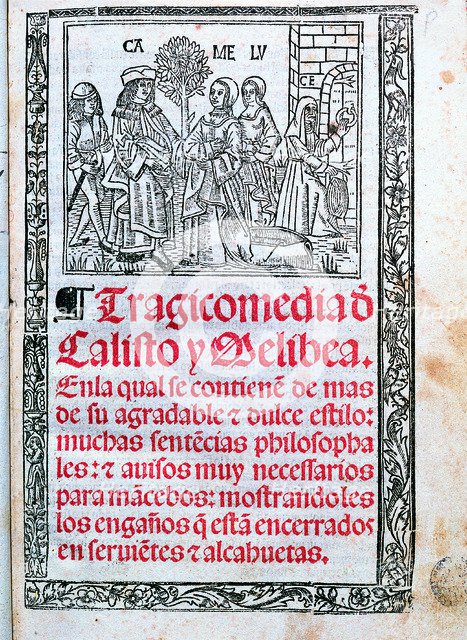 CA ME LV
CE
¶ Tragicomedia đ
Calisto y Melibea.
Enla qual se contienē de mas
de su agradable ⁊ dulce estilo:
muchas sentēcias philosopha
les: ⁊ auisos muy necessarios
para mācebos: mostrandoles
los engaños q̄ estā encerrados
en seruiētes ⁊ alcahuetas.